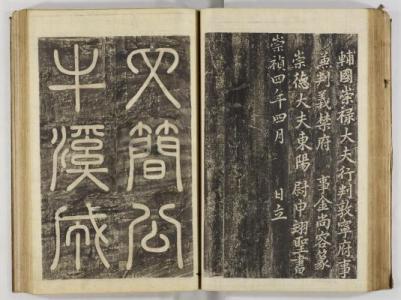 輔國崇禄大夫行判敦寧府事
兼判義禁府 事金尚容篆
崇德大夫東陽尉申翊聖書
崇禎四年四月 日立
文簡公
牛溪成